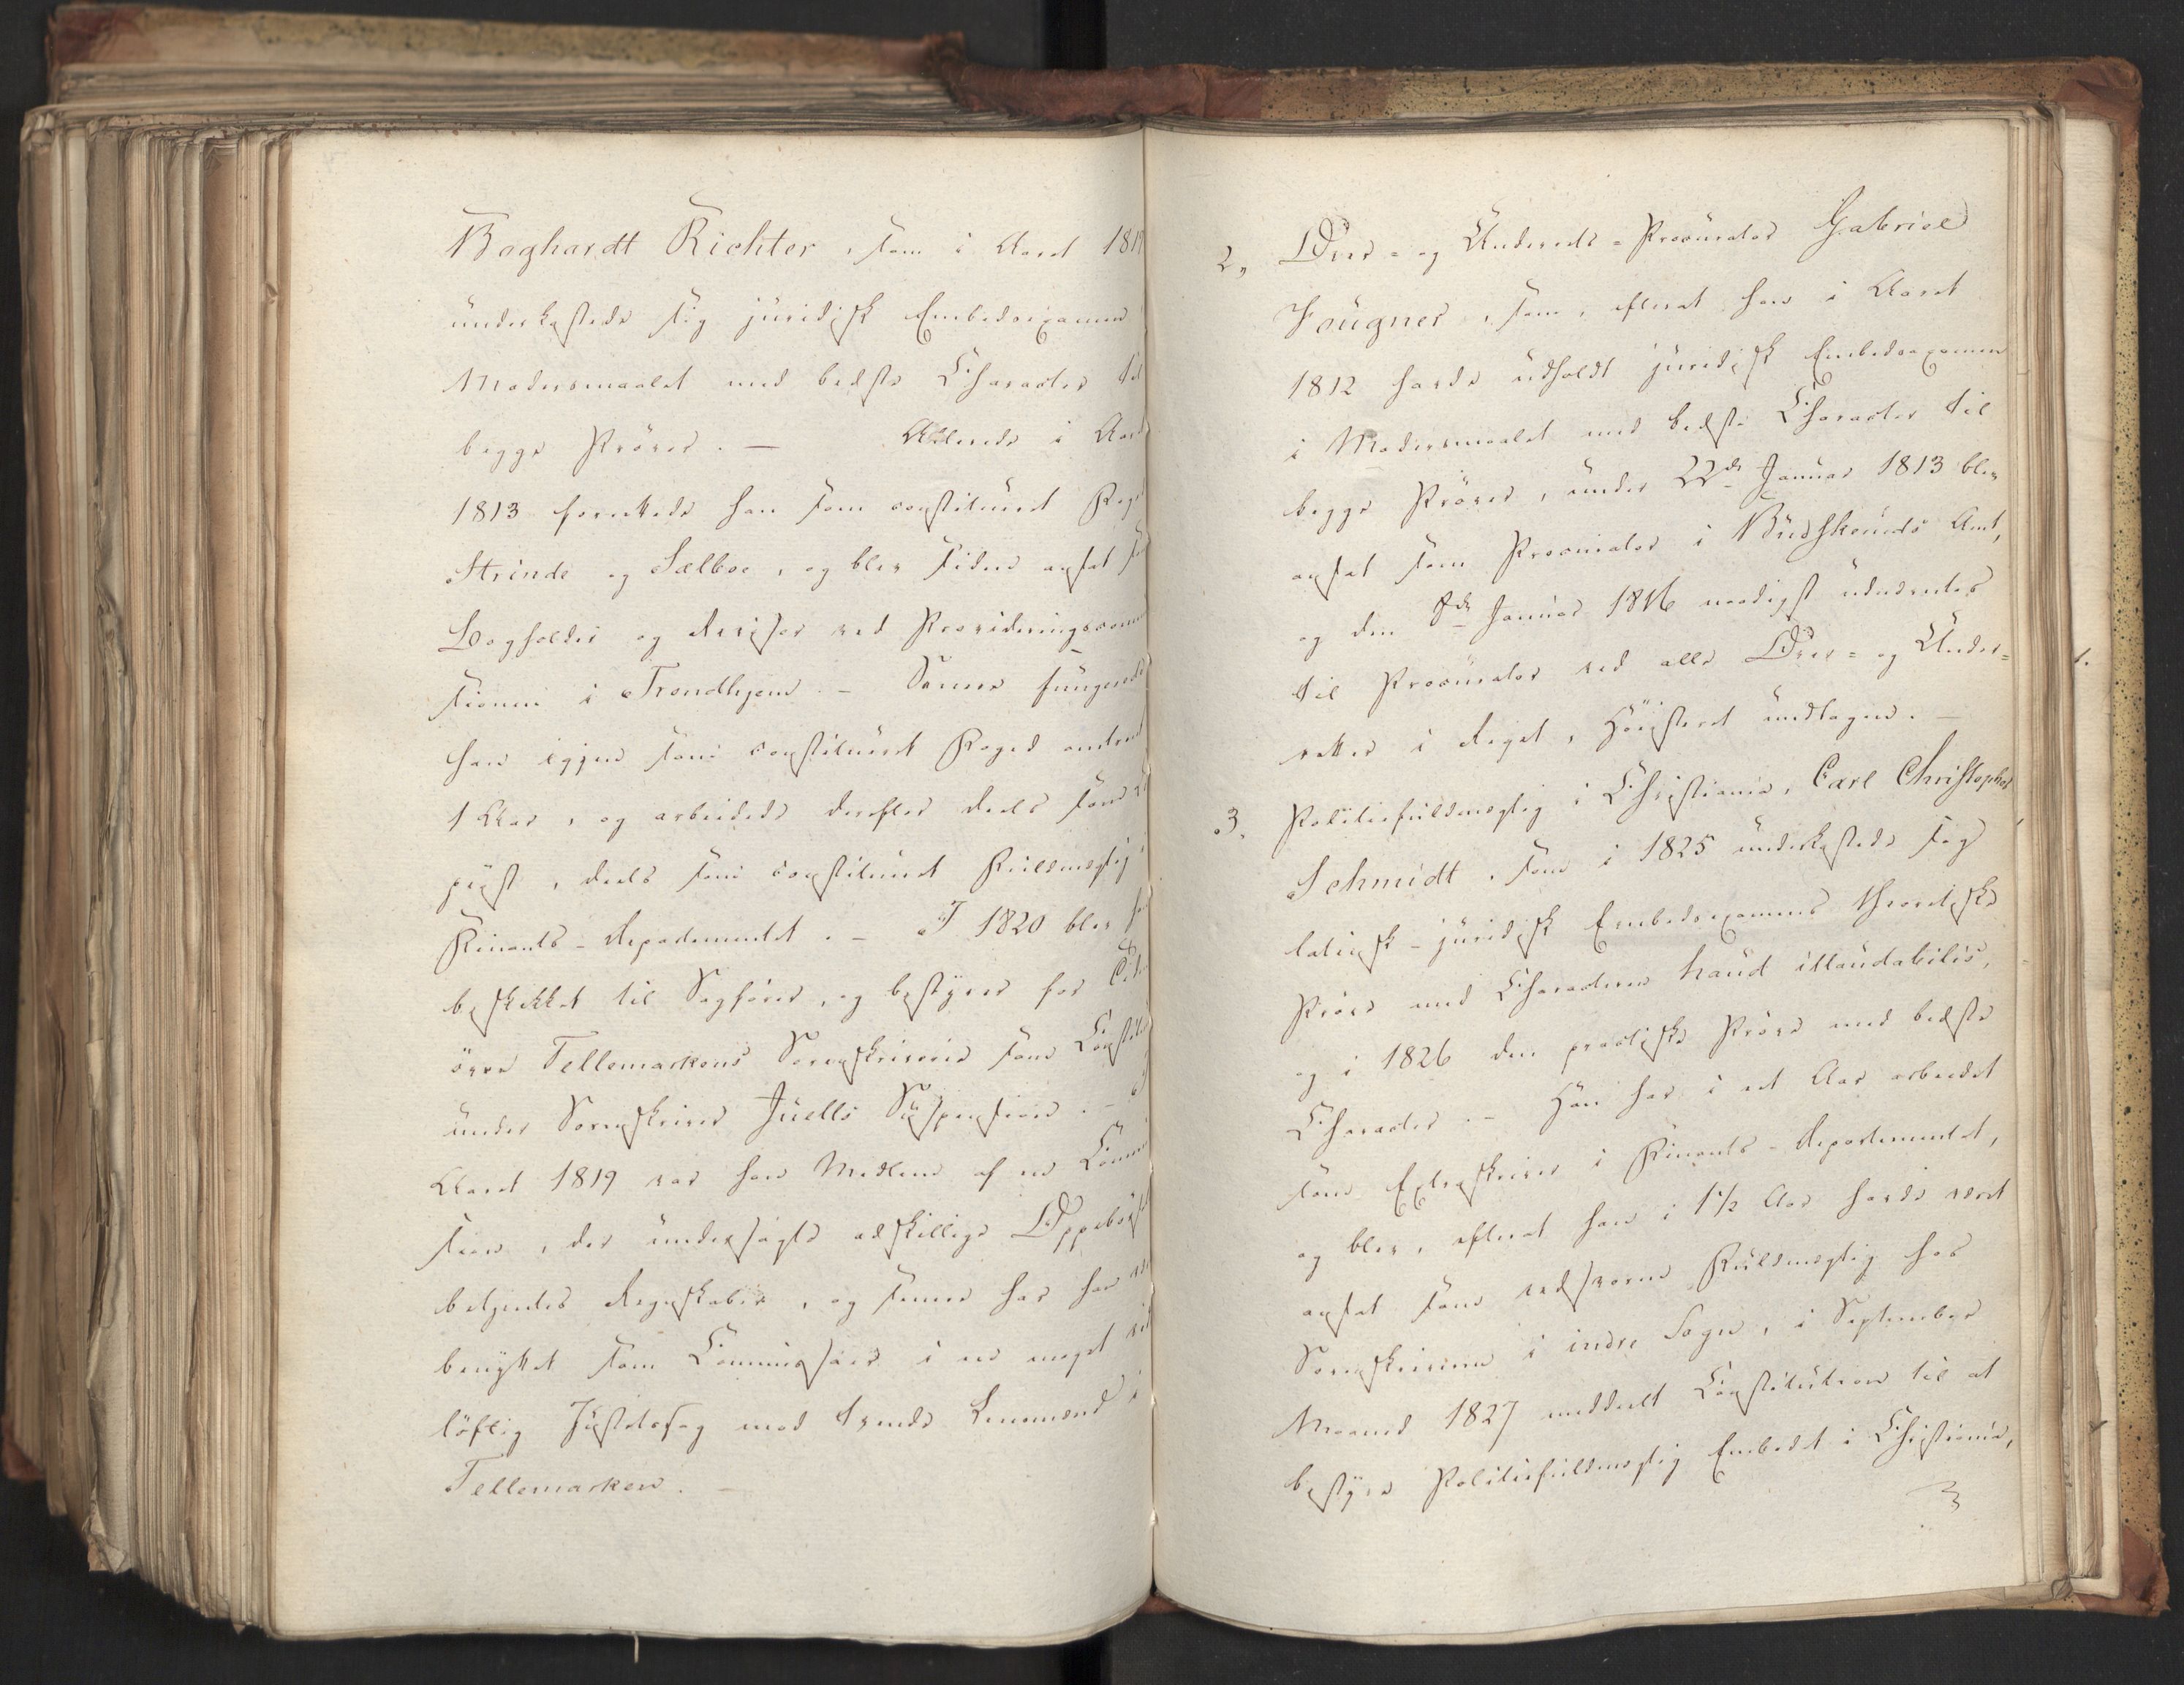 Boghardt Richter, som i Aaret 181
underkastede sig juridisk Embedsexamen
Modersmaalet med bedste Character til
begge Prøver. — Allerede i Aar
1813 forrettede han som constitueret Foged
Strinde og Sælboe, og blev siden ansat som
Bogholder og Revisor ved Provideringscom
sionen i Trondhjem. – Senere fungerede
han igjen som constitueret Foged omtrent
1 Aar, og arbeidede derefter deels som
pist, deels som constitueret Fuldmægtig
Finants-Departementet. – I 1820 blev
beskikket til Sagfører, og bestyrer for Tide
øvre Tellemarkens Sorenskriverie som Constit
under Sorenskriver Juells Suspension. –
Aaret 1819 var han Medlem af en Commi
sion, der undersøgte adskillige Oppebørsel
betjentes Regnskaber, og senere har han
benyttet som Commissair i en meget vid
løftig Justitssag mod trende Lensmænd i
Tellemarken. –
2, Over- og Underrets-Procurator Gabriel
Fougner, som, efterat han i Aaret
1812 havde udholdt juridisk Embedsexamen
i Modersmaalet med bedste Character til
begge Prøver, under 22de Januar 1813 blev
ansat som Procurator i Budskeruds Amt,
og den 8de Januar 1816 naadigst udnævntes
til Procurator ved alle Over- og Under-
retter i Riget, Høiesteret undtagen. –
3, Politiefuldmægtig i Christiania, Carl Christopher
Schmidt, som i 1825 underkastede sig
latinsk-juridisk Embedsexamens theoretiske
Prøve med Characteren haud illaudabilis,
og i 1826 den practiske Prøve med bedste
Character. – Han har i et Aar arbeidet
som Extraskriver i Finants-Departementet,
og blev, efterat han i 1½ Aar havde været
ansat som edsvoren Fuldmægtig hos
Sorenskriveren i indre Sogn, i September
Maaned 1827 meddeelt Constitution til at
bestyre Politiefuldmægtig Embedet i Christiania,